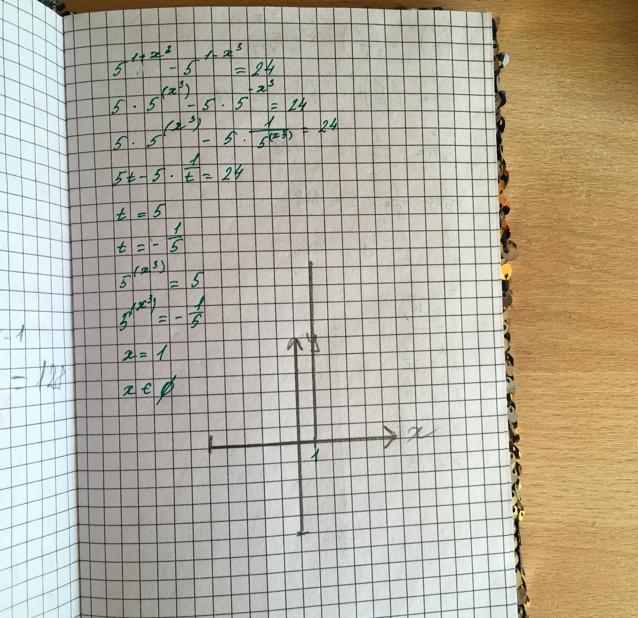 5^{1+x^3} - 5^{1-x^3} = 24
5 · 5^{(x^3)} - 5 · 5^{-x^3} = 24
5 · 5^{(x^3)} - 5 · \frac{1}{5^{(x^3)}} = 24
5t - 5 · \frac{1}{t} = 24
t = 5
t = - \frac{1}{5}
5^{(x^3)} = 5
5^{(x^3)} = - \frac{1}{5}
-1
= 128
x = 1
x ∈ ∅
y
x
1